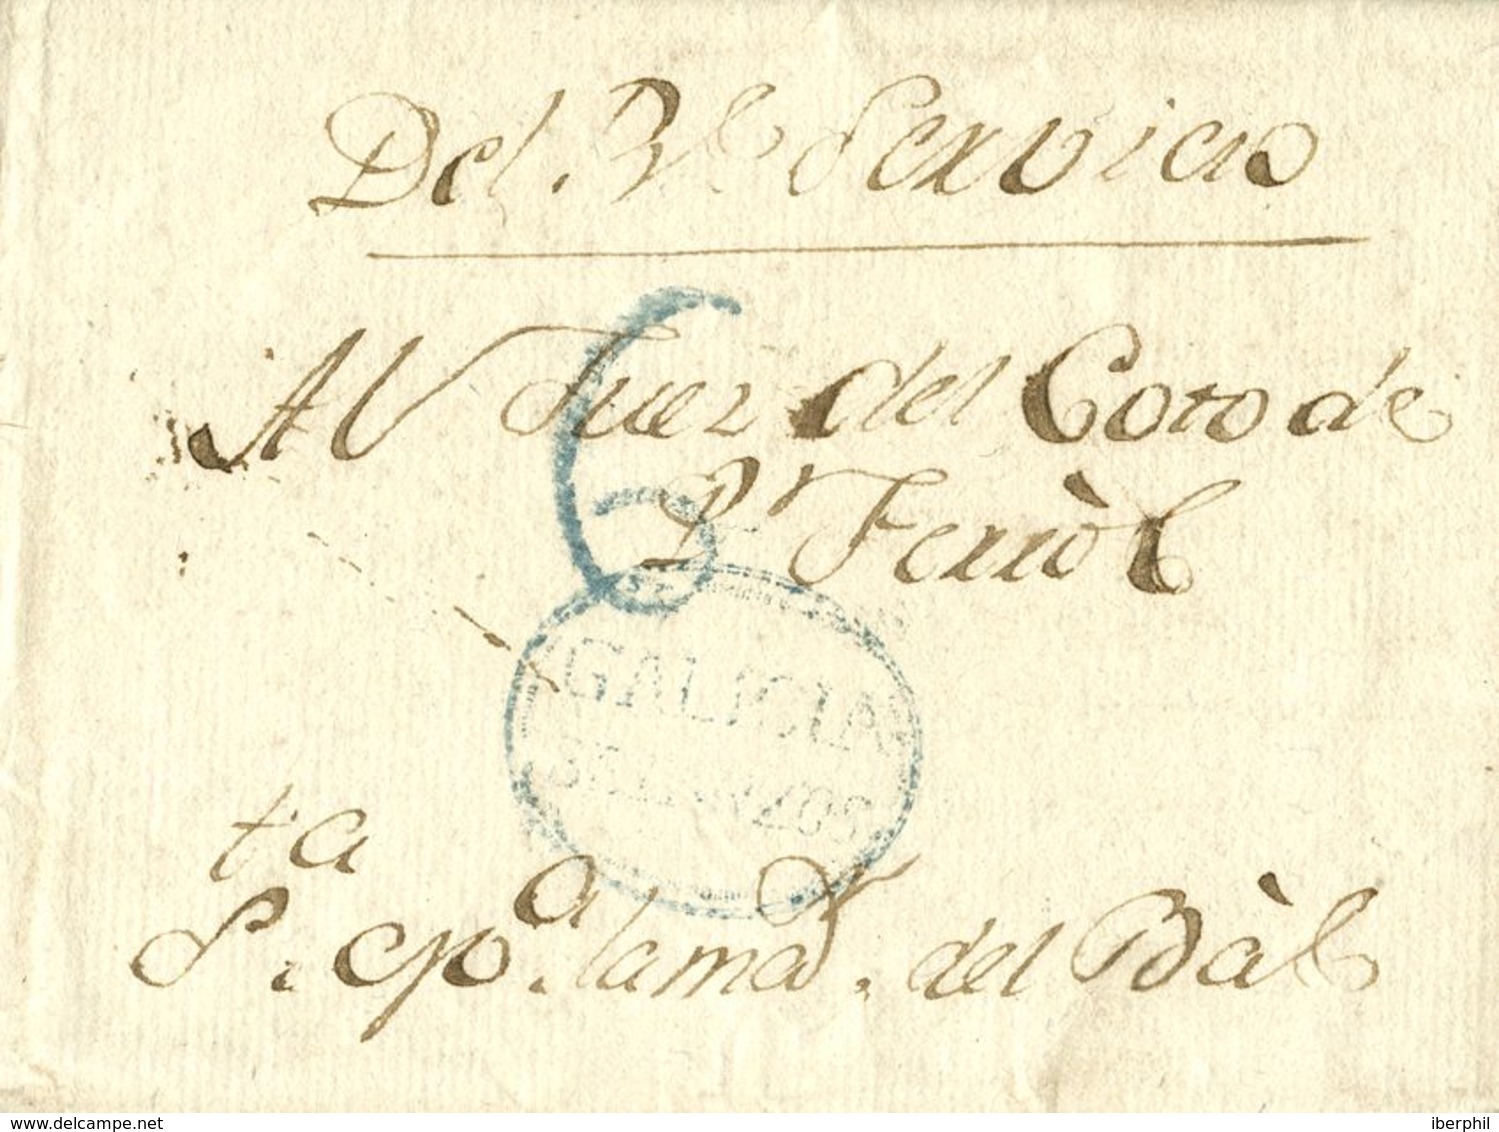 Del. Rl Servicio
Al Juez del Coto de
Pr Ferròl
6
GALICIA
BETANZOS
ta
S. cpo a lama. del Bàl
www.delcampe.net
iberphil